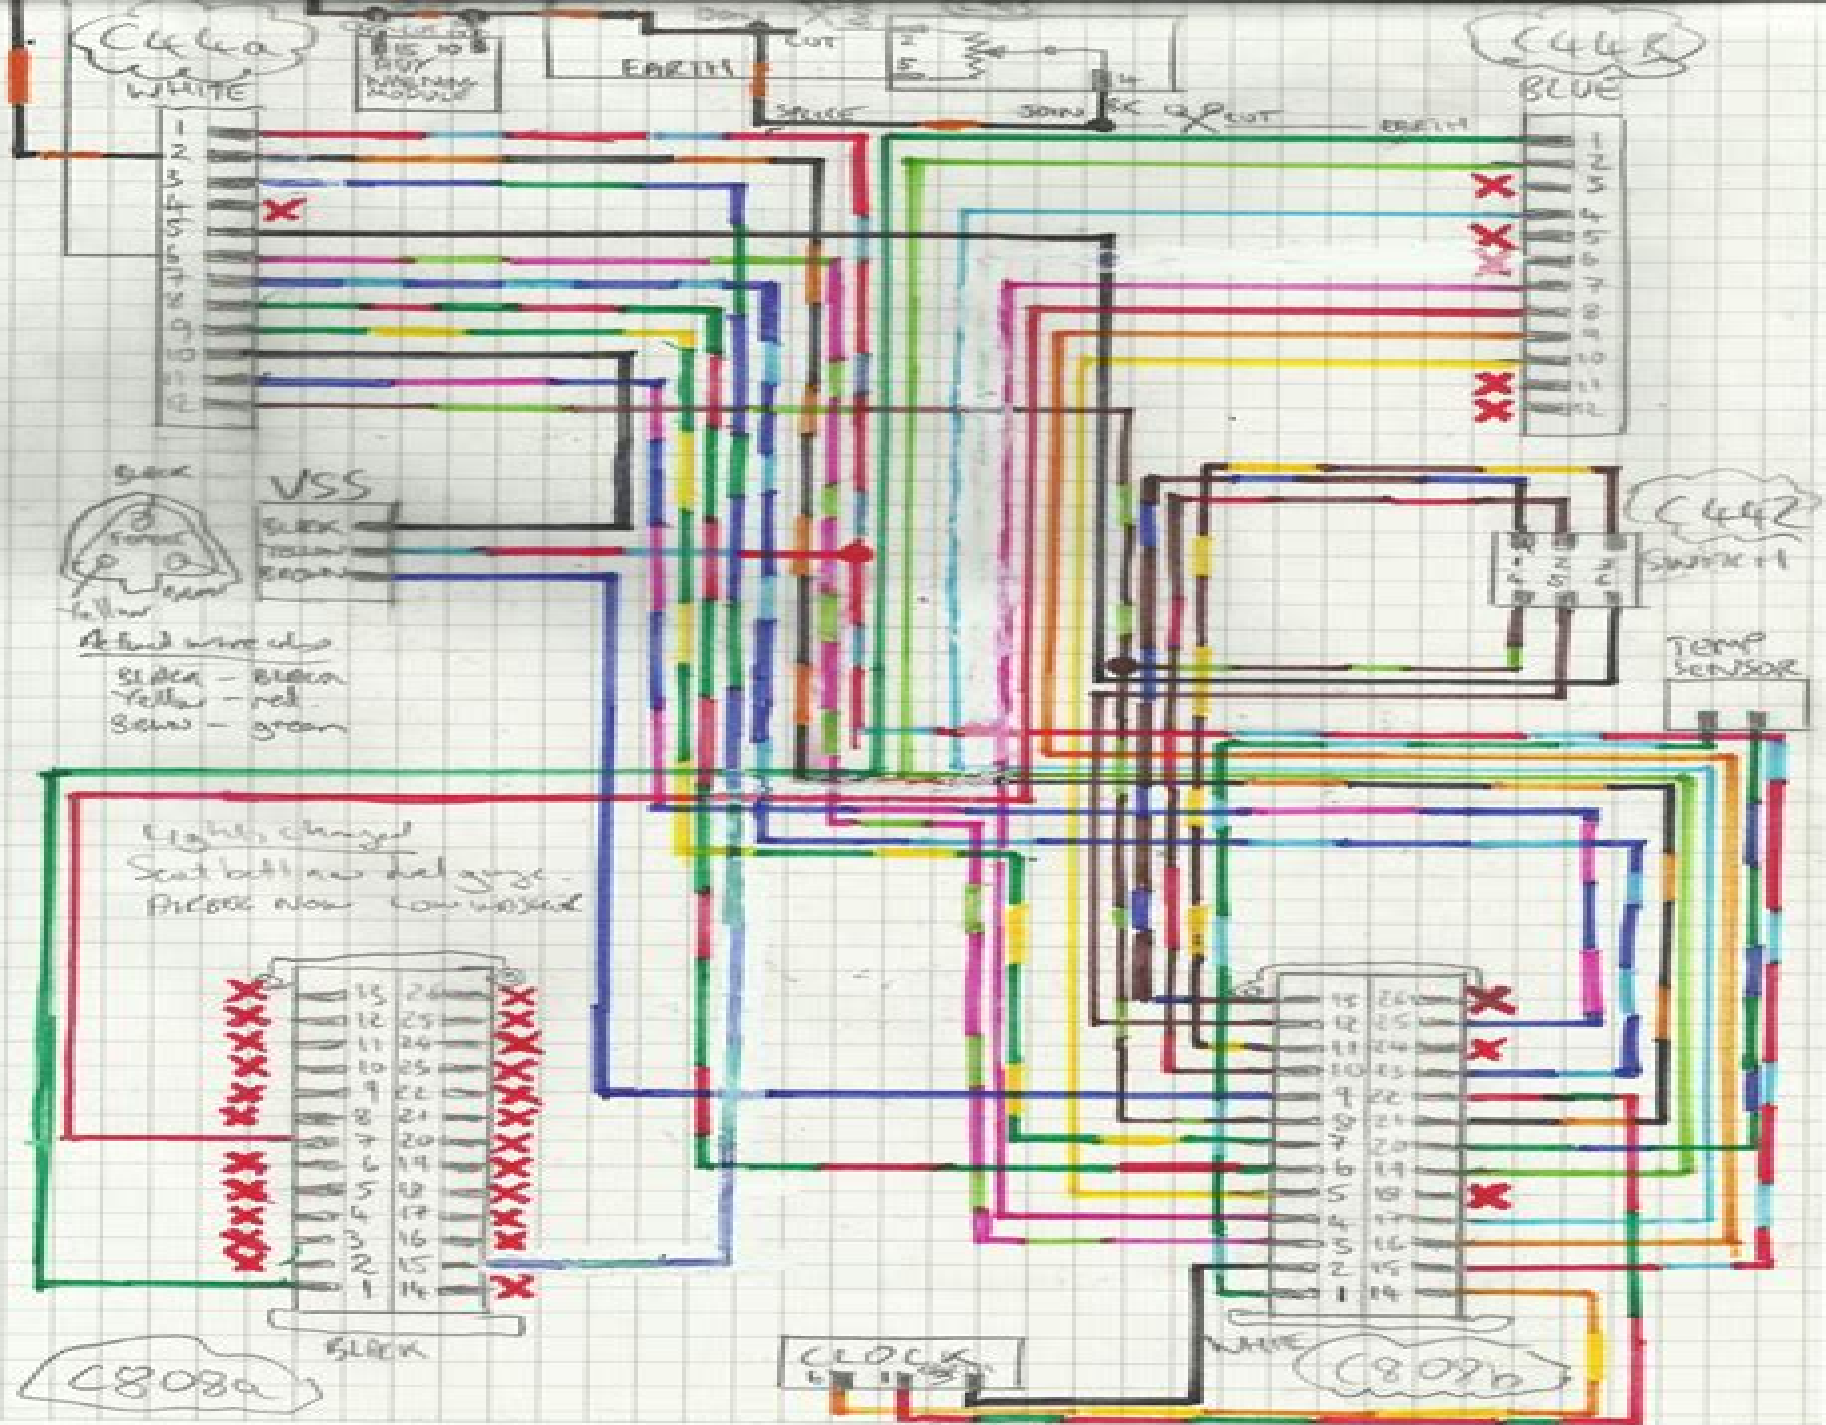 C44a
WHITE
EARTH
WARNING
MODULE
CUT
SPLICE
JOIN
CUT
EARTH
C44B
BLUE
1
2
3
4
5
6
7
8
9
10
11
12
1
2
3
4
5
6
7
8
9
10
11
12
VSS
BLACK
BLACK
YELLOW
BROWN
Yellow
Brown
Actual wire cols
BLACK - BLACK
Yellow - red
Brown - green
C442
SWITCH
TEMP
SENSOR
Lights changed
Seat belt now fuel guage
AIRBAG NOW LOW WASHER
13 26
12 25
11 24
10 23
9 22
8 21
7 20
6 19
5 18
4 17
3 16
2 15
1 14
BLACK
C808a
13 26
12 25
11 24
10 23
9 22
8 21
7 20
6 19
5 18
4 17
3 16
2 15
1 14
WHITE
C808b
CLOCK